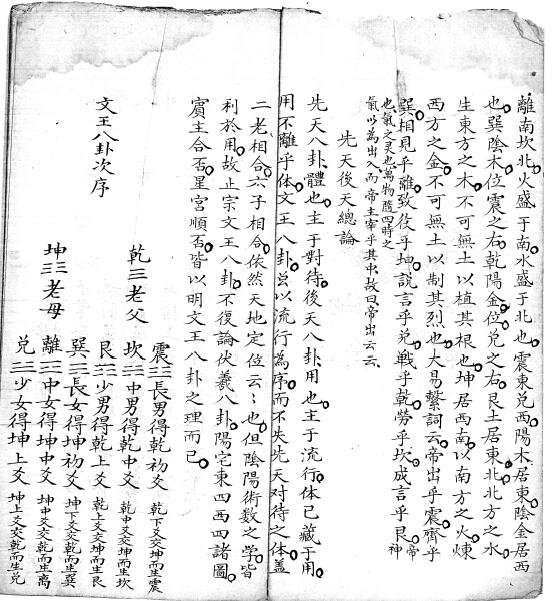 離南坎北火盛于南水盛于北也震東兌西陽木居東陰金居西
也巽陰木位震之右乾陽金位兌之右艮土居東北北方之水
生東方之木不可無土以植其根也坤居西南以南方之火煉
西方之金不可無土以制其烈也大易繫詞云帝出乎震齊乎
巽相見乎離致役乎坤說言乎兌戰乎乾勞乎坎成言乎艮帝神
也氣之灵也萬物隨四時之
氣以為出入而帝主宰乎其中故曰帝出云云
先天後天總論
先天八卦體也主于對待後天八卦用也主于流行体已藏于用
用不離乎体文王八卦虽以流行為序而不失先天对待之体盖
二老相合六子相合依然天地定位云々也但陰陽術数之学皆
利於用故止宗文王八卦不復論伏羲八卦陽宅東四西四諸圖
賓主合否星宮順否皆以明文王八卦之理而已
文王八卦次序
乾☰老父
震☳長男得乾初爻 乾下爻交坤而生震
坎☵中男得乾中爻 乾中爻交坤而生坎
艮☶少男得乾上爻 乾上爻交坤而生艮
坤☷老母
巽☴長女得坤初爻 坤下爻交乾而生巽
離☲中女得坤中爻 坤中爻交乾而生离
兌☱少女得坤上爻 坤上爻交乾而生兌